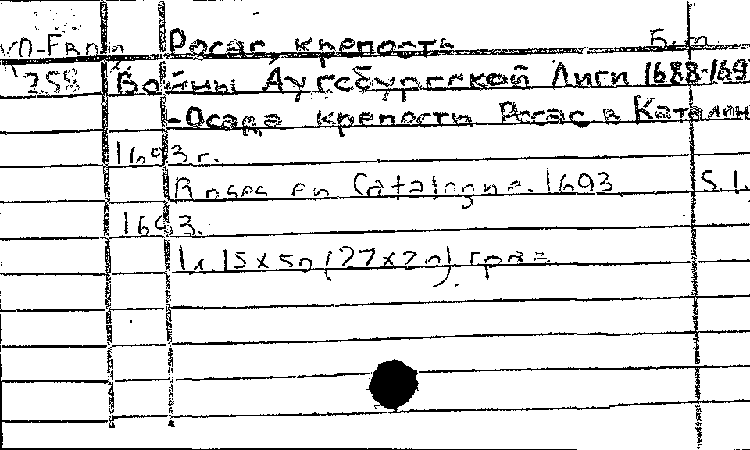 Росас, крепость Б.м.
258 Войны Аугсбургской Лиги 1688-169
-Осада крепости Росас в Каталон
1693 г.
Roses en Catalogne. 1693 S.l.
1693.
1 л. 15x50 (27x20). грав.